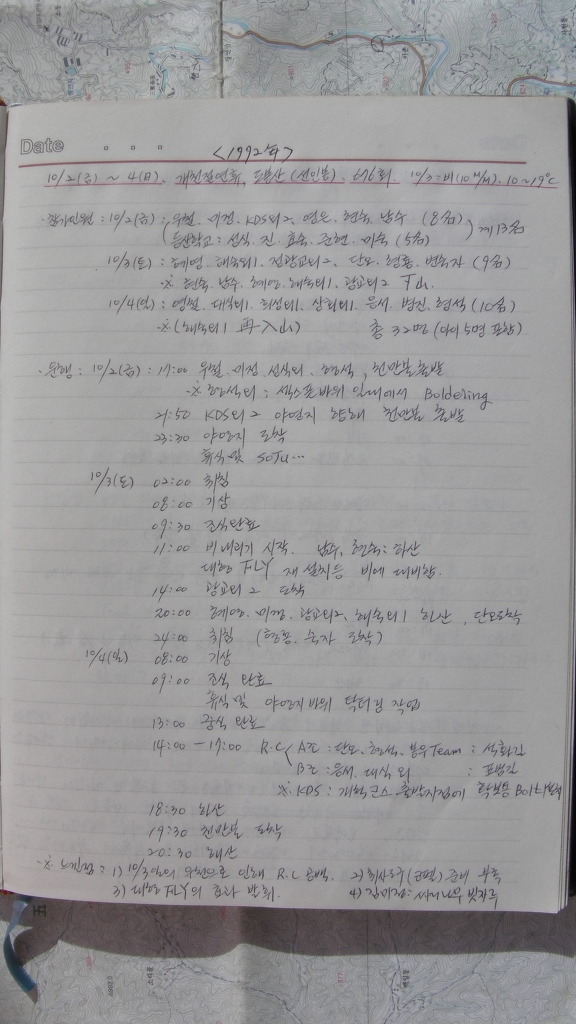 Date
<1992年>
10/2(금) ~ 4(日). 개천절연휴, 도봉산 (선인봉). 676회. 10/3=비(10 M/M). 10~19℃
·참가인원 : 10/2(금) : 우철. 미정. KDS외2. 영은. 현숙. 남수 (8名)
(등산학교 : 선식. 진. 효숙. 준현. 미숙 (5名) 계13名
10/3(토) : 혜영. 해숙외1. 광교외2. 단오. 형용. 변숙자 (9名)
※ 현숙. 남수. 혜영. 해숙외1. 광교외2 下山.
10/4(일) : 영철. 대식외1. 희성외1. 상희외1. 윤서. 범진. 형석 (10名)
※ (해숙외1 再入山) 총 32명 (아이 5명 포함)
·운행 : 10/2(금) : 17:00 우철. 미정. 선식외. 형석, 천만봉출발
※ 형석외 : 바위 일대에서 Boldering
21:50 KDS외2 야영지 향해 천만봉 출발
23:30 야영지 도착
휴식 및 SOJU...
10/3(토) 02:00 취침
08:00 기상
09:30 조식완료
11:00 비내리기 시작. 남수, 현숙: 하산
대형 FLY 재설치등 비에 대비함.
14:00 광교외 2 도착
20:00 혜영. 미경. 광교외2. 해숙외1 하산, 단오도착
24:00 취침 (형용. 숙자 도착)
10/4(일) 08:00 기상
09:00 조식 완료
휴식 및 야영지바위 닥터링 작업
13:00 중식 완료
14:00 - 17:00 R.C A조 : 단오. 형석. Team : 석화길
B조 : 윤서. 대식 외 : 표범길
※ KDS : 개척코스 출발지점에 확보용 Bolt
18:30 하산
19:30 천만봉 도착
20:30 해산
※ 느낀점 : 1) 10/3일의 우천으로 인해 R.C 공백. 2) 취사도구 (코펠) 준비 부족
3) 대형 FLY의 효과 발휘. 4) 김미경: 싸리나무 빗자루